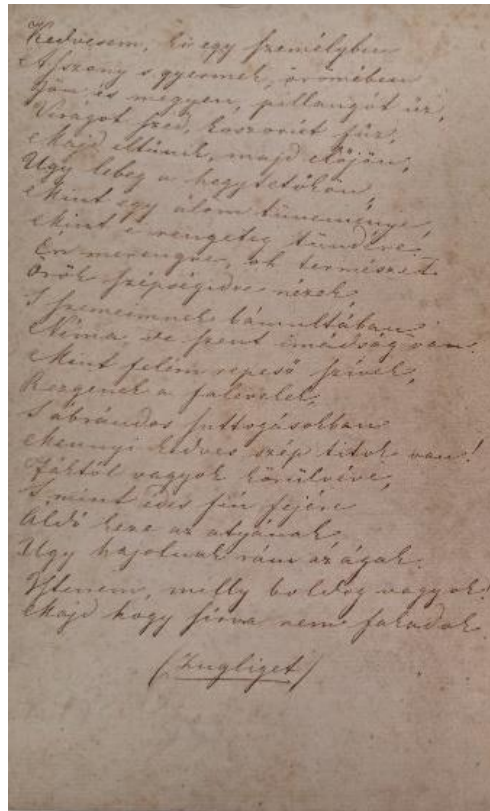 Kedvesem, ki egy személyben
Asszony s gyermek, örömében
Jön és megyen, pillangót űz,
Virágot szed, koszorút fűz,
Majd eltünik, majd előjön,
Ugy lebeg a hegytetőkön,
Mint egy álom tüneménye,
Mint e rengeteg tündére.
Én merengve, oh természet
Örök szépségidre nézek,
S szemeimnek bámultában
Néma, de szent imádság van.
Mint felém repeső szivek,
Rezgenek a falevelek,
S ábrándos suttogásokban
Mennyi kedves szép titok van!
Fáktól vagyok körülvéve,
S mint édes fia fejére
Áldó keze az atyának,
Ugy hajolnak rám az ágak.
Istenem, milly boldog vagyok!
Majd hogy sirva nem fakadok.
(Zugliget)